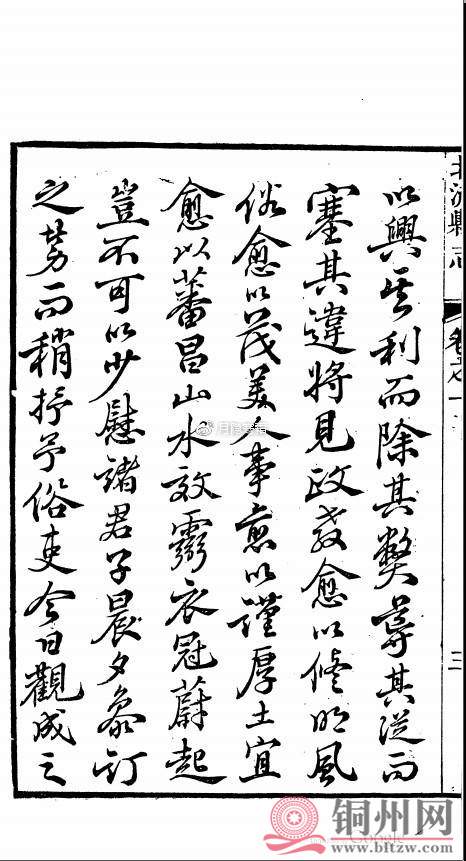 北流縣志
卷之一
三
以興其利而除其獘尊其從而
塞其違將見政教愈以修明風
俗愈以茂美人事愈以謹厚土宜
愈以蕃昌山水效靈衣冠蔚起
豈不可以少慰諸君子晨夕參訂
之勞而稍抒予俗吏今日觀成之
铜州网
www.bltzw.com
Google